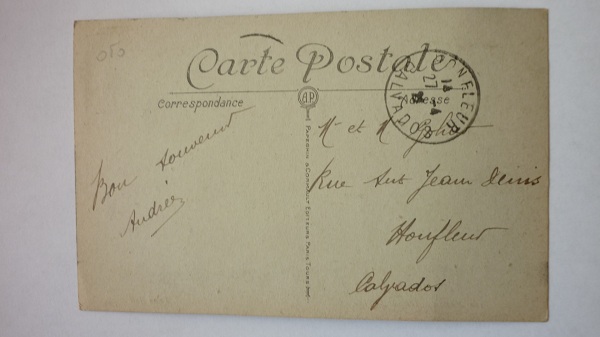 Carte Postale
Correspondance
Adresse
AP
HONFLEUR
CALVADOS
14
27
Bon souvenir
Andrée
Mr et Mme
Rue
Jean Denis
Honfleur
Calvados